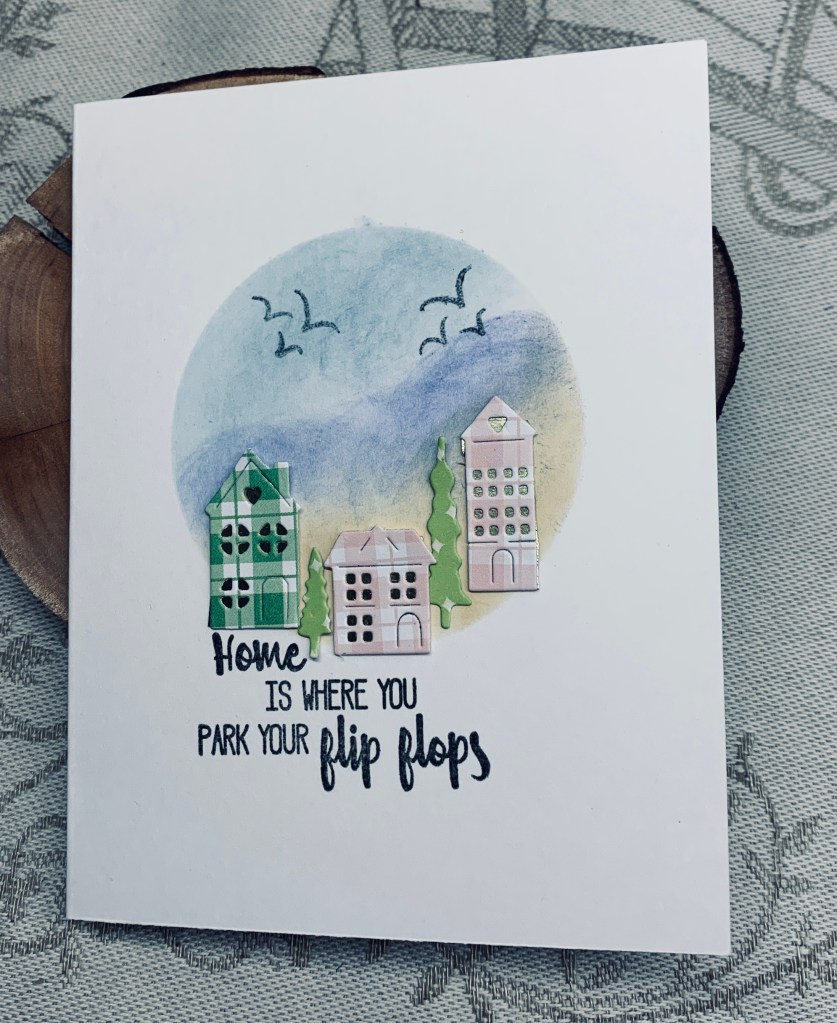 Home
IS WHERE YOU
PARK YOUR flip flops